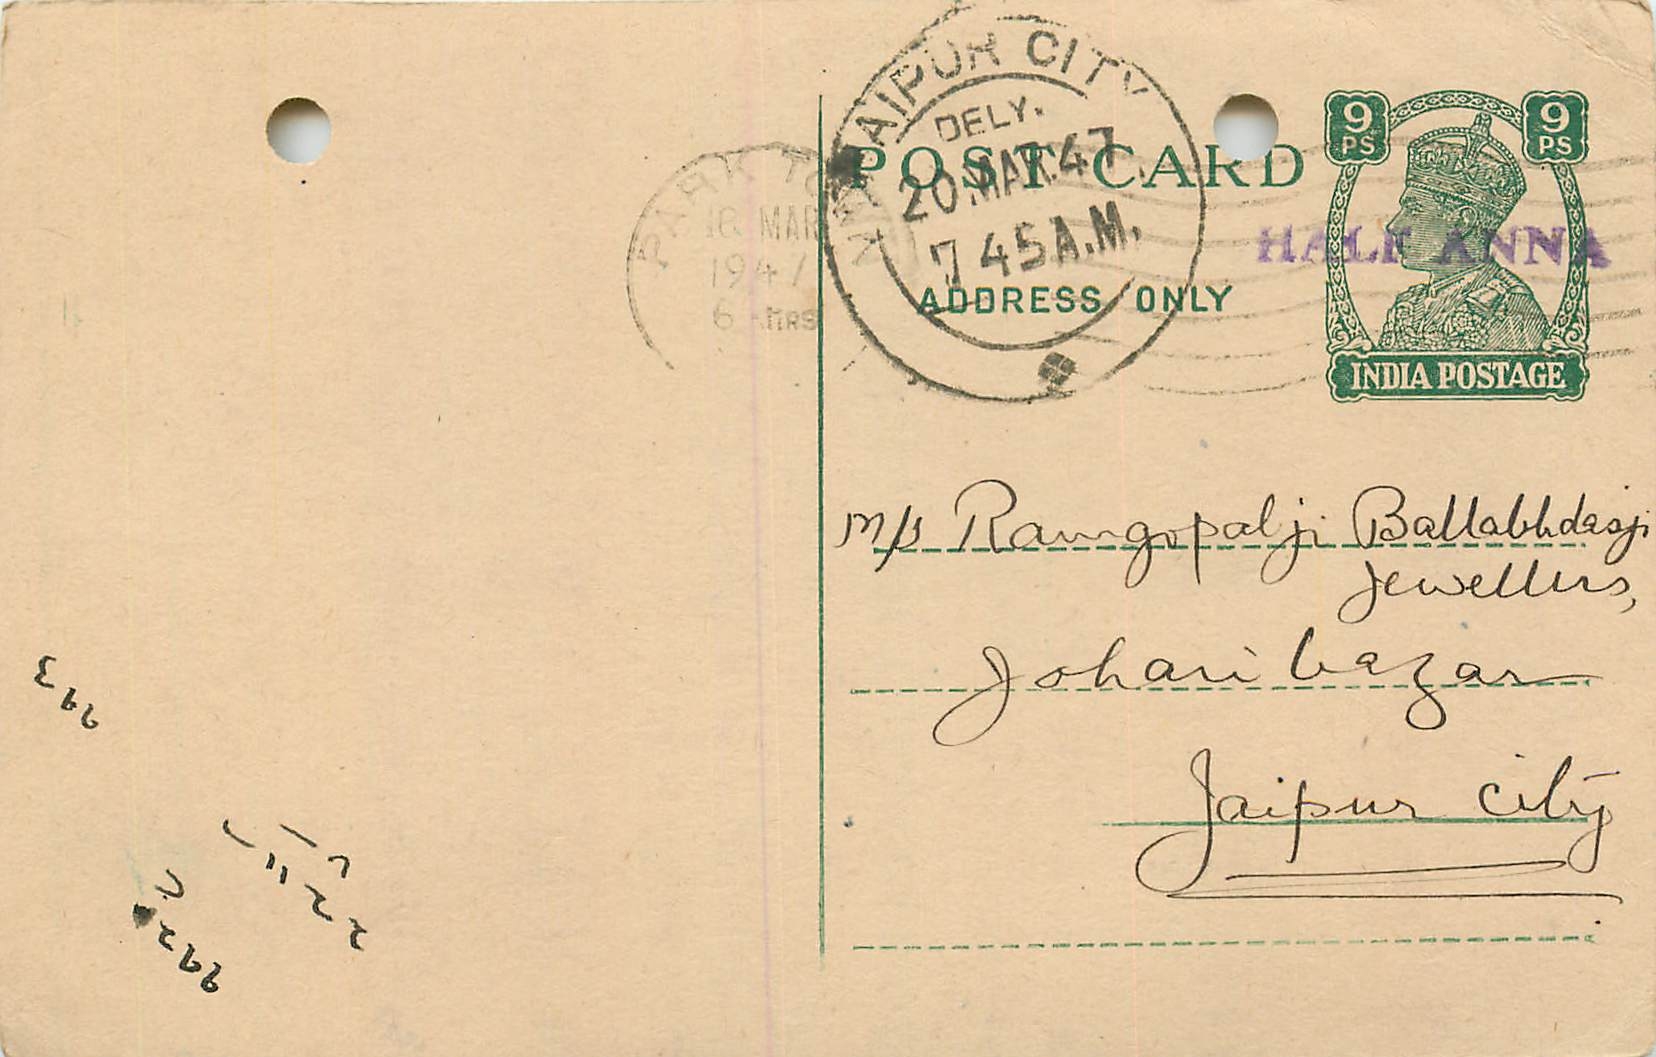 JAIPUR CITY
DELY.
20 MAR. 47
7 45 A.M.
PARK TO
18 MAR
1947
6 HRS
POST CARD
ADDRESS ONLY
9 PS
9 PS
HALF ANNA
INDIA POSTAGE
M/s Ramgopalji Ballabhdasji
Jewellers,
Johari bazar
Jaipur City